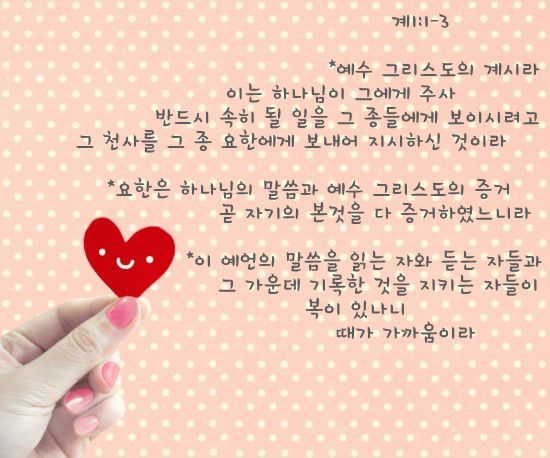 계1:1-3
*예수 그리스도의 계시라
이는 하나님이 그에게 주사
반드시 속히 될 일을 그 종들에게 보이시려고
그 천사를 그 종 요한에게 보내어 지시하신 것이라
*요한은 하나님의 말씀과 예수 그리스도의 증거
곧 자기의 본것을 다 증거하였느니라
*이 예언의 말씀을 읽는 자와 듣는 자들과
그 가운데 기록한 것을 지키는 자들이
복이 있나니
때가 가까움이라